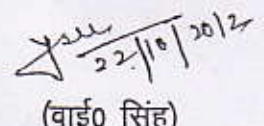 22/10/2012
(वाई0 सिंह)